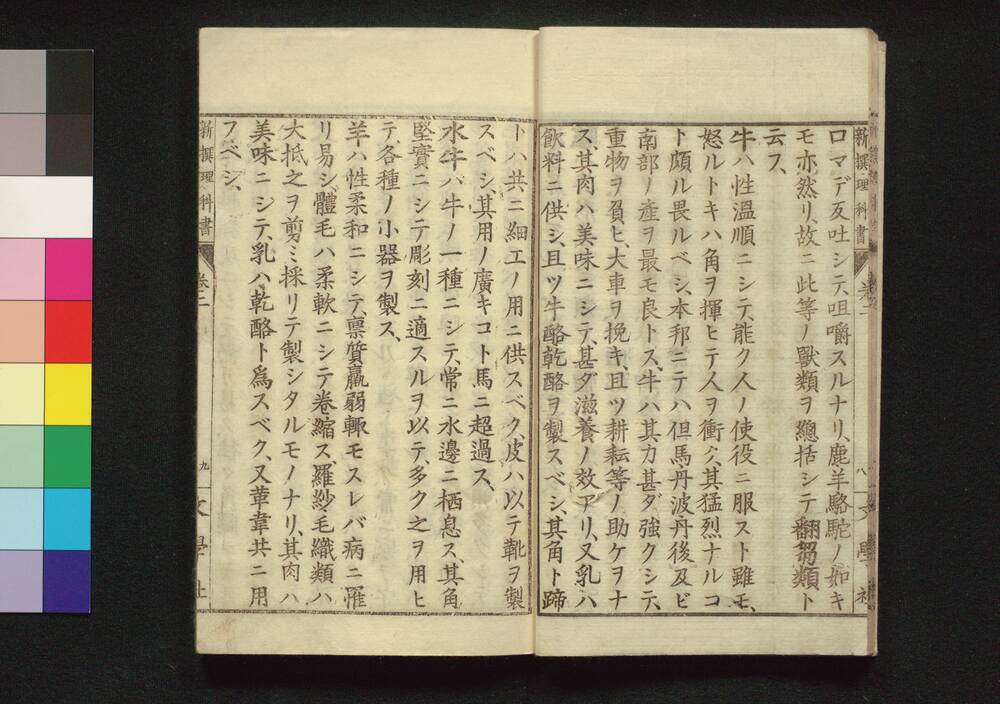 新撰理科書 卷二 八 文學社
ロマデ反吐シテ咀嚼スルナリ、鹿羊駱駝ノ如キ
モ亦然リ、故ニ此等ノ獸類ヲ總括シテ翻芻類ト
云フ、
牛ハ性溫順ニシテ、能ク人ノ使役ニ服スト雖モ、
怒ルトキハ角ヲ揮ヒテ人ヲ衝ク、其猛烈ナルコ
ト頗ル畏ルベシ、本邦ニテハ但馬丹波丹後及ビ
南部ノ產ヲ最モ良トス、牛ハ其力甚ダ強クシテ、
重物ヲ負ヒ、大車ヲ挽キ、且ツ耕耘等ノ助ケヲナ
ス、其肉ハ美味ニシテ、甚ダ滋養ノ效アリ、又乳ハ
飮料ニ供シ、且ツ牛酪乾酪ヲ製スベシ、其角ト蹄
トハ共ニ細工ノ用ニ供スベク、皮ハ以テ靴ヲ製
スベシ、其用ノ廣キコト馬ニ超過ス、
水牛バ牛ノ一種ニシテ、常ニ水邊ニ栖息ス、其角
堅實ニシテ彫刻ニ適スルヲ以テ、多ク之ヲ用ヒ
テ、各種ノ小器ヲ製ス、
羊ハ性柔和ニシテ、禀質羸弱輙モスレバ病ニ罹
リ易シ、體毛ハ柔軟ニシテ卷縮ス、羅紗毛織類ハ
大抵之ヲ剪ミ採リテ製シタルモノナリ、其肉ハ
美味ニシテ、乳ハ乾酪ト爲スベク、又革韋共ニ用
フベシ、
新撰理科書 卷二 九 文學社